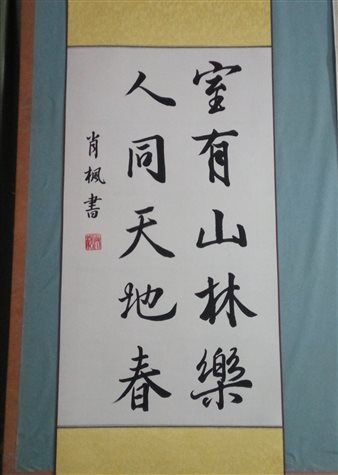 室有山林樂
人同天地春
肖楓書